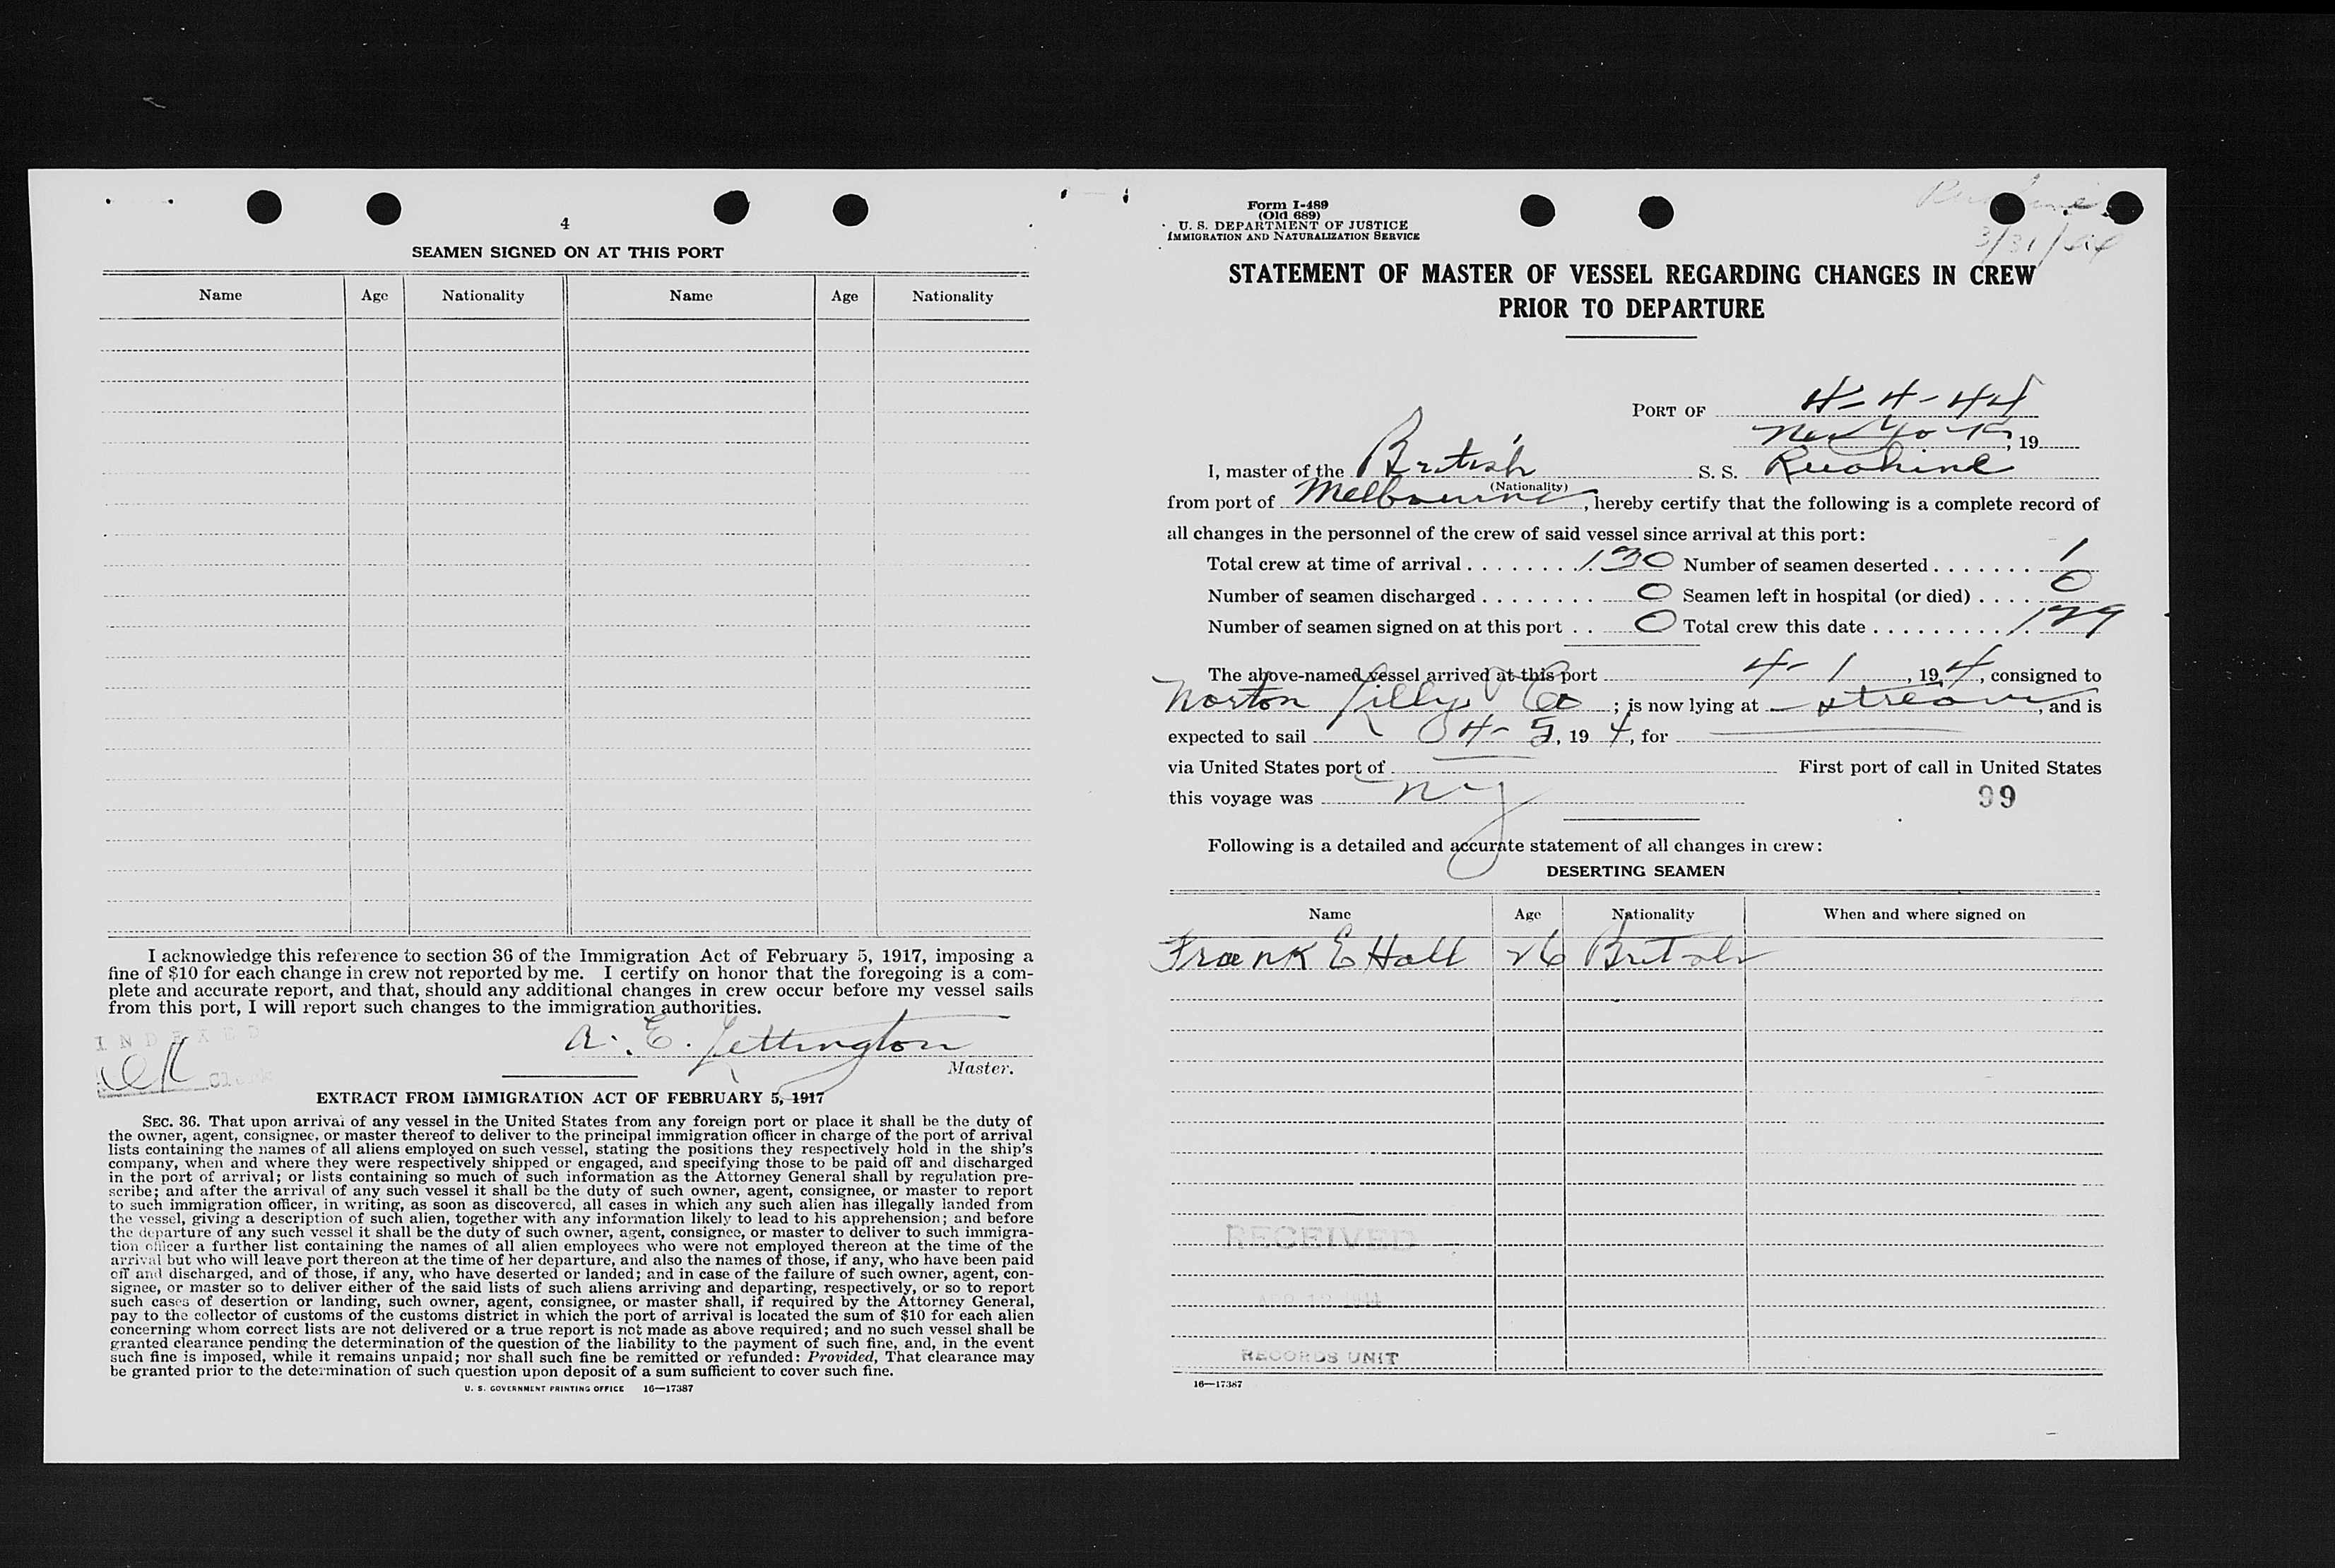 4
SEAMEN SIGNED ON AT THIS PORT
Name Age Nationality Name Age Nationality
I acknowledge this reference to section 36 of the Immigration Act of February 5, 1917, imposing a
fine of $10 for each change in crew not reported by me. I certify on honor that the foregoing is a com-
plete and accurate report, and that, should any additional changes in crew occur before my vessel sails
from this port, I will report such changes to the immigration authorities.
INDEXED
Clerk
A. E. Lettington
Master.
EXTRACT FROM IMMIGRATION ACT OF FEBRUARY 5, 1917
SEC. 36. That upon arrival of any vessel in the United States from any foreign port or place it shall be the duty of
the owner, agent, consignee, or master thereof to deliver to the principal immigration officer in charge of the port of arrival
lists containing the names of all aliens employed on such vessel, stating the positions they respectively hold in the ship's
company, when and where they were respectively shipped or engaged, and specifying those to be paid off and discharged
in the port of arrival; or lists containing so much of such information as the Attorney General shall by regulation pre-
scribe; and after the arrival of any such vessel it shall be the duty of such owner, agent, consignee, or master to report
to such immigration officer, in writing, as soon as discovered, all cases in which any such alien has illegally landed from
the vessel, giving a description of such alien, together with any information likely to lead to his apprehension; and before
the departure of any such vessel it shall be the duty of such owner, agent, consignee, or master to deliver to such immigra-
tion officer a further list containing the names of all alien employees who were not employed thereon at the time of the
arrival but who will leave port thereon at the time of her departure, and also the names of those, if any, who have been paid
off and discharged, and of those, if any, who have deserted or landed; and in case of the failure of such owner, agent, con-
signee, or master so to deliver either of the said lists of such aliens arriving and departing, respectively, or so to report
such cases of desertion or landing, such owner, agent, consignee, or master shall, if required by the Attorney General,
pay to the collector of customs of the customs district in which the port of arrival is located the sum of $10 for each alien
concerning whom correct lists are not delivered or a true report is not made as above required; and no such vessel shall be
granted clearance pending the determination of the question of the liability to the payment of such fine, and, in the event
such fine is imposed, while it remains unpaid; nor shall such fine be remitted or refunded: Provided, That clearance may
be granted prior to the determination of such question upon deposit of a sum sufficient to cover such fine.
U. S. GOVERNMENT PRINTING OFFICE 16—17387
Form I-489
(Old 689)
U. S. DEPARTMENT OF JUSTICE
IMMIGRATION AND NATURALIZATION SERVICE
3/31/44
STATEMENT OF MASTER OF VESSEL REGARDING CHANGES IN CREW
PRIOR TO DEPARTURE
PORT OF 4-4-44
New York, 19
I, master of the British S. S. Ruahine
(Nationality)
from port of Melbourne, hereby certify that the following is a complete record of
all changes in the personnel of the crew of said vessel since arrival at this port:
Total crew at time of arrival 130 Number of seamen deserted 1
Number of seamen discharged 0 Seamen left in hospital (or died) 0
Number of seamen signed on at this port 0 Total crew this date 129
The above-named vessel arrived at this port 4-1, 194, consigned to
Norton Lilly Co; is now lying at stream, and is
expected to sail 4-5, 194, for
via United States port of First port of call in United States
this voyage was NY
99
Following is a detailed and accurate statement of all changes in crew:
DESERTING SEAMEN
Name Age Nationality When and where signed on
Frank E Hall 26 British
RECEIVED
APR 12 1944
RECORDS UNIT
16—17387